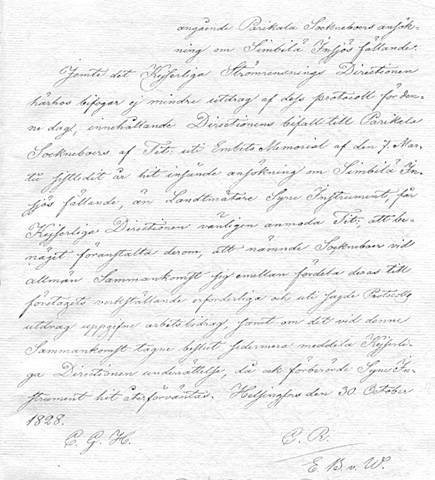 angående Parikala Sockneboers ansök-
ning om Simbilä Insjös fällande.
Jemte det Kejserliga Strömrensnings Directionen
härhos bifogar ej mindre utdrag af dess protocoll för den-
ne dag, innehållande Directionens bifall till Parikala
Sockneboers af Tit: uti Embets Memorial af den 7. Mar-
tii sistledit år hit insände ansökning om Simbilä In-
sjös fällande, än Landtmätare Syne Instrument, får
Kejserliga Directionen vänligen anmoda Tit: att be-
näget föranstalta derom, att nämnde Sockneboer vid
allmän Sammankomst sig emellan fördela deras till
företagets verkställande erforderliga och uti sagde Protocolls
utdrag uppgifne arbetsbidrag, samt om det vid denne
Sammankomst tagne beslut sedermera meddela Kejserli-
ga Directionen underrättelse, då ock förberörde Syne In-
strument hit återförväntas. Helsingfors den 30 October
1828.
C. G. H. C. R.
E. B. v. W.